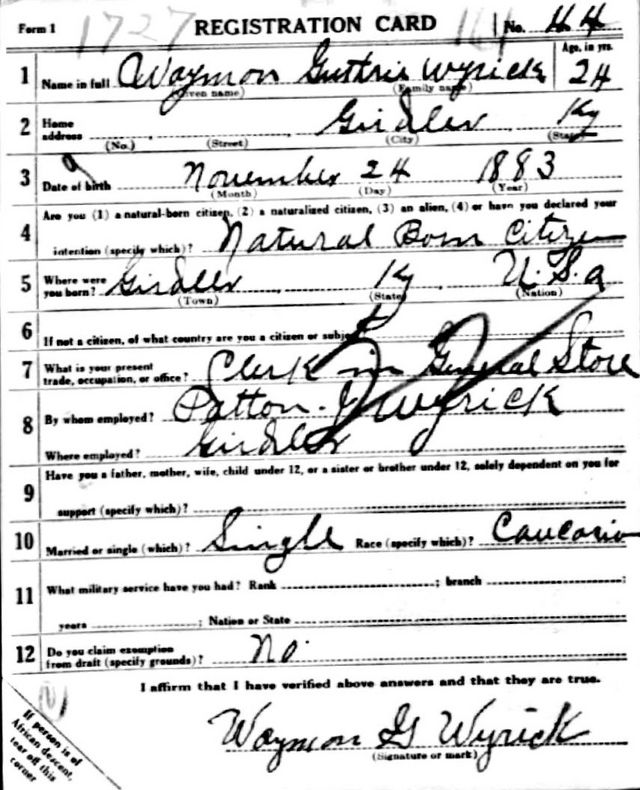 Form 1 1727 REGISTRATION CARD 164 No. 44
1 Name in full Waymon Guthrie Wyrick Age, in yrs. 24
(Given name) (Family name)
2 Home address Girdler Ky
(No.) (Street) (City) (State)
3 Date of birth November 24 1883
(Month) (Day) (Year)
4 Are you (1) a natural-born citizen, (2) a naturalized citizen, (3) an alien, (4) or have you declared your
intention (specify which)? Natural Born Citizen
5 Where were you born? Girdler Ky U.S.a
(Town) (State) (Nation)
6 If not a citizen, of what country are you a citizen or subject?
7 What is your present trade, occupation, or office? Clerk in General Store
8 By whom employed? Patton J Wyrick
Where employed? Girdler
9 Have you a father, mother, wife, child under 12, or a sister or brother under 12, solely dependent on you for
support (specify which)?
10 Married or single (which)? Single Race (specify which)? Caucasian
11 What military service have you had? Rank ; branch ;
years ; Nation or State
12 Do you claim exemption from draft (specify grounds)? No.
I affirm that I have verified above answers and that they are true.
Waymon G Wyrick
(Signature or mark)
If person is of
African descent,
tear off this
corner